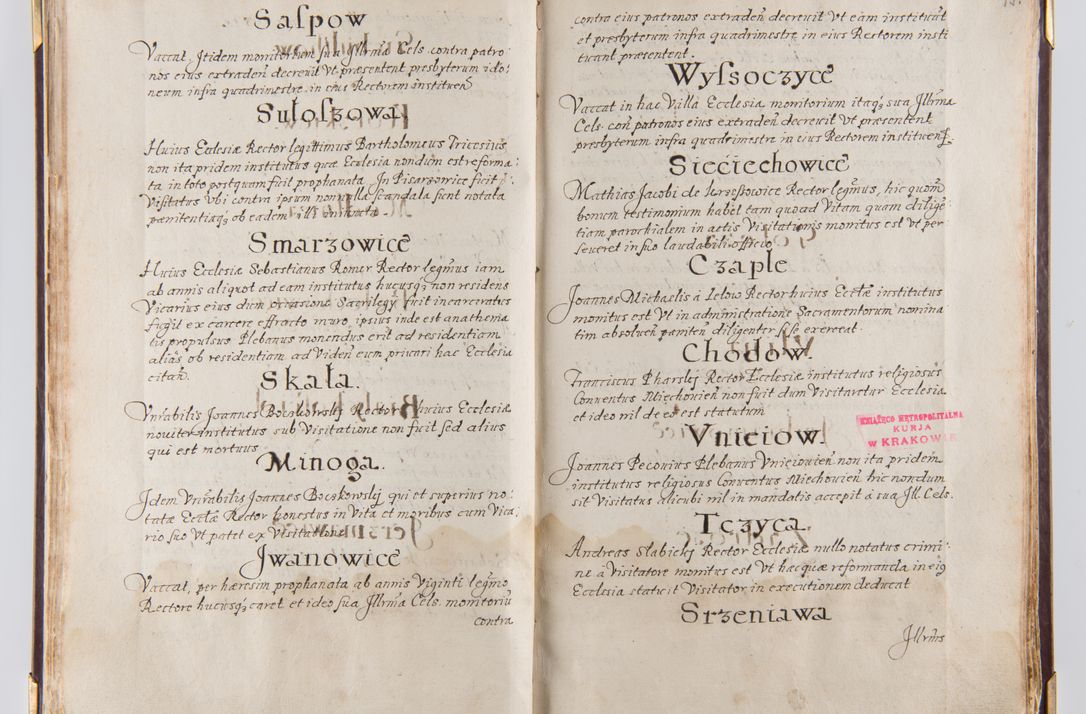 Saſpow
Vaccat, Itidem monitorium sua Jllrma Cels. contra patro:
nos eius extraden̄ decreuit Vt præsentent presbyterum ido:
neum infra quadrimestre in eius Rectorem instituen̄
Sułoſzowa
Huius Ecclesiæ Rector legittimus Bartholomeus Tricesius,
non ita pridem institutus quæ Ecclesia nondum est reforma:
ta in toto postquam fuit prophanata. In Pisarzowice fuit
Visitatus Vbi contra ipsum nonnulla scandala sunt notata
pœnitentiaq; ob eadem illi iniuncta.
Smarzowice
Huius Ecclesiæ Sebastianus Romer Rector legmus iam
ab annis aliquot ad eam institutus hucusq; non residens
Vicarius eius dum occasione Sacrilegy fuit incarceratus
fugit ex carcere effracto muro, ipsius inde est anathema
tis propulsus. Plebanus monendus erit ad residentiam
alias ob residentiam ad Viden̄ eum priuari hac Ecclesia
citan̄.
Skała.
Vnrabilis Joannes Boczkowskj Rector huius Ecclesiæ
nouiter institutus sub Visitatione non fuit sed alius
qui est mortuus.
Minoga.
Idem Vnrabilis Joannes Boczkowskj qui et superius no:
tatæ Ecclæ Rector honestus in Vita et moribus cum Vica:
rio suo Vt patet ex Visitatione.
Jwanowice
Vaccat, per hæresin prophanata ab annis Viginti legmo
Rectore hucusq; caret et ideo sua Jllrma Cels. monitoriū
contra
contra eius patronos extraden̄ decreuit Vt eam instituāt
et presbyterum infra quadrimestre in eius Rectorem insti
tuant præsentent.
Wyſsoczyce
Vaccat in hac Villa Ecclesia monitorium itaq; sua Jllrma
Cels. con̄ patronos eius extraden̄ decreuit Vt præsentent
presbyterum infra quadrimestre in eius Rectorem instituen̄
Sieciechowice
Mathias Jacobi de Rector legmus, hic quom̄
bonum testimonium habet tam quoad Vitam quam dilige͞
tiam parochialem in actis Visitationis monitus est Vt per
seueret in suo laudabili officio
Czaple
Joannes Michaelis á Lelow Rector huius Ecclæ institutus
monitus est Vt in administratione Sacramentorum nomina
tim absoluen̄ pœniten̄ diligenter sese exerceat.
Chodow.
Franciscus Pharskj Rector Ecclesiæ institutus religiosus
Conuentus Miechouien̄ non fuit dum Visitaretur Ecclesia
et ideo nil de eo est statutum
KSIĄŻĘCO METROPOLITALNA
KURJA
W KRAKOWIE
Vniciow.
Joannes Peconius Plebanus Vniciouien̄ non ita pridem
institutus religiosus Conuentus Miechouien̄ hic nondum
sit Visitatus alicubi nil in mandatis accepit á sua Jll. Cels.
Tczyca
Andreas Słabickj Rector Ecclesiæ nullo notatus crimi:
ne á Visitatore monitus est Vt hæc quæ reformanda in eius
Ecclesia statuit Visitator in executionem deducat
Srzeniawa
Jllrmus